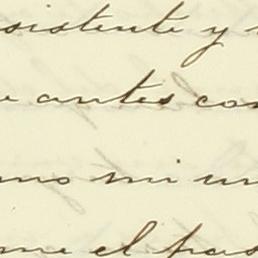 sistente y
antes con
mi un
me el pas